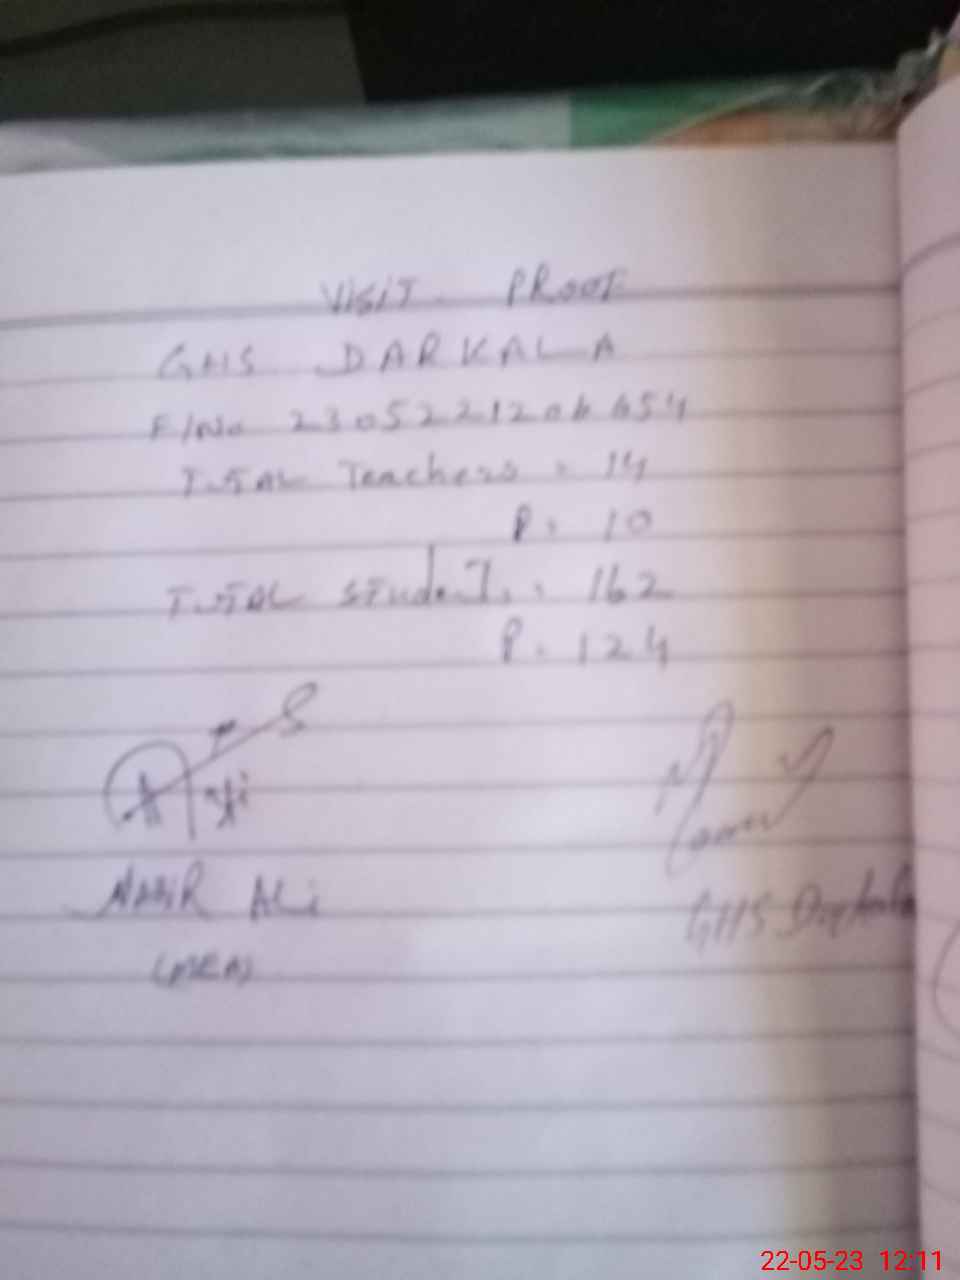 VISIT PROOF
GHS DARKALA
F/No 2305221206654
TOTAL Teachers = 14
P = 10
TOTAL Students = 162
P = 124
NASIR ALi
(MEA)
GHS Darkala
22-05-23 12:11